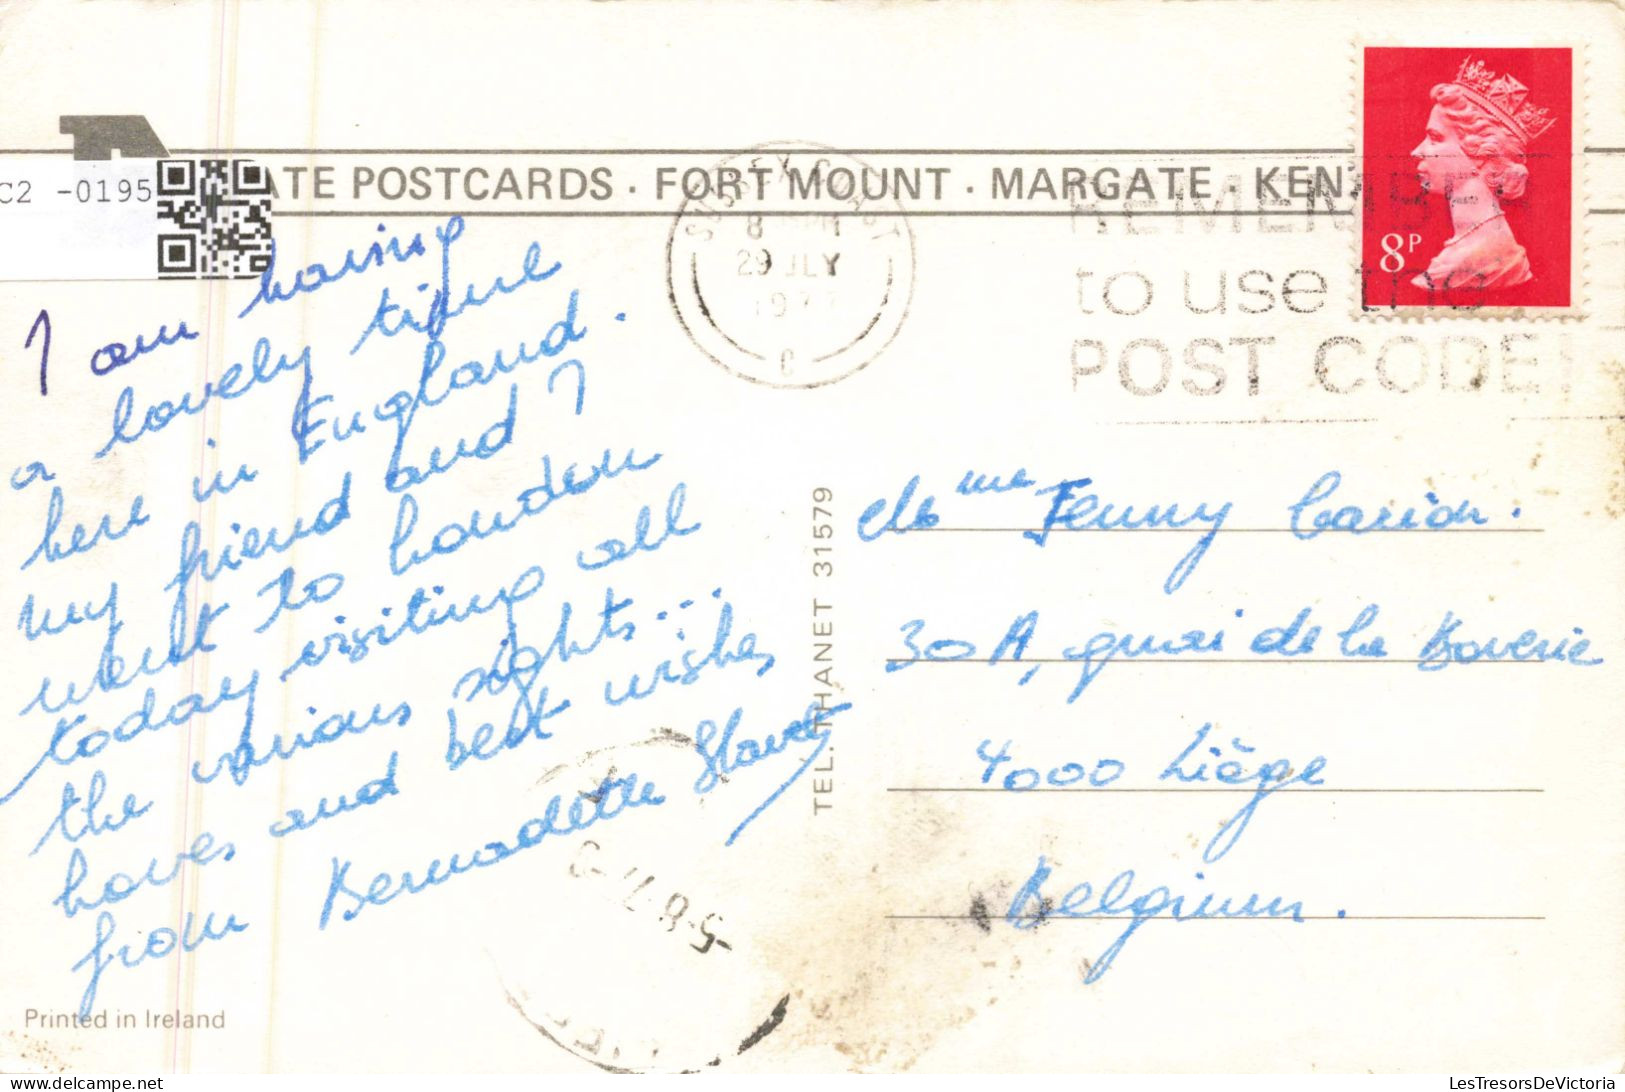 C2 -0195
ATE POSTCARDS · FORT MOUNT · MARGATE · KEN
SUSSEX COAST
8 PM
29 JLY
1977
C
REMEMBER
to use the
POST CODE!
8P
I am having
a lovely time
here in England.
my friend and I
went to London
today visiting all
the various sights...
loves and best wishes
from Bernadette
TEL. THANET 31579
Melle Jenny Carion.
30A, quai de la Boverie
4000 Liège
Belgium.
5-8-77-
Printed in Ireland
LesTresorsDeVictoria